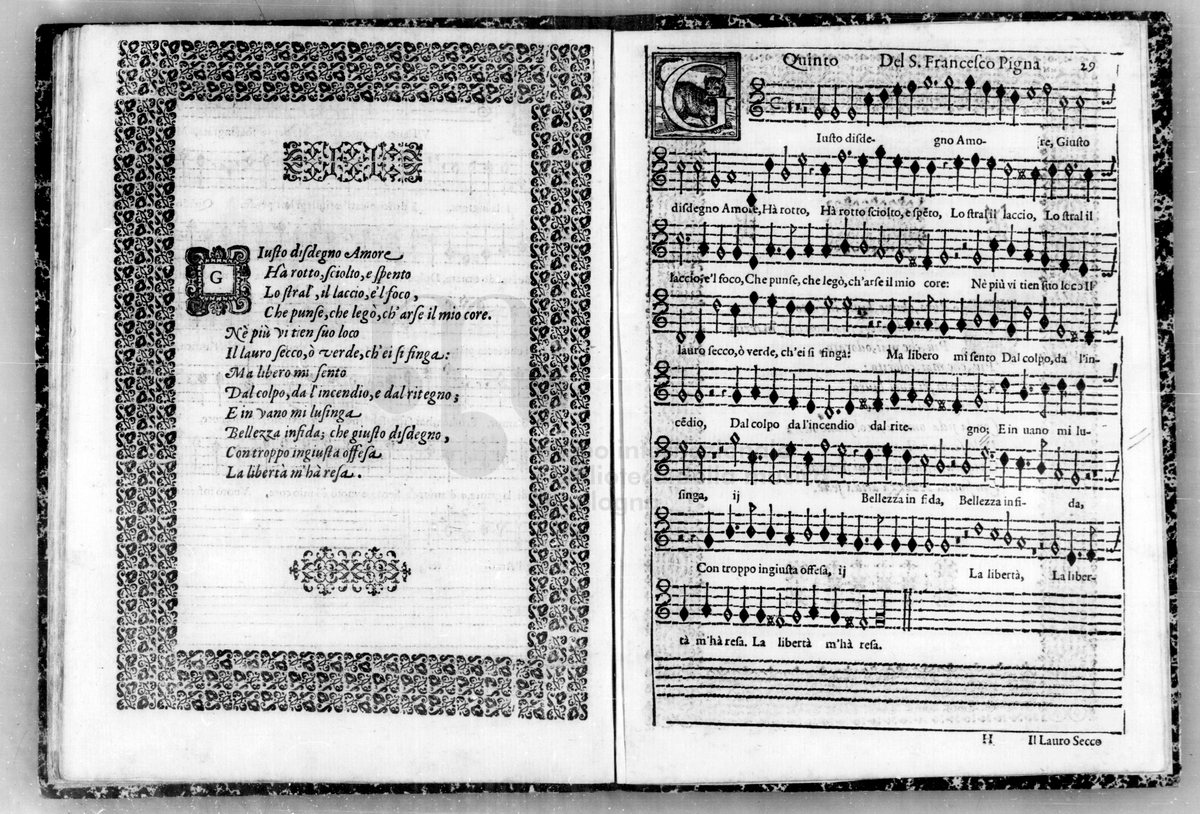 G
Iusto disdegno Amore
Hà rotto, sciolto, e spento
Lo stral, il laccio, e'l foco,
Che punse, che legò, ch'arse il mio core.
Nè più vi tien suo loco
Il lauro secco, ò verde, ch'ei si finga:
Ma libero mi sento
Dal colpo, da l'incendio, e dal ritegno;
E in vano mi lusinga
Bellezza infida; che giusto disdegno,
Con troppo ingiusta offesa
La libertà m'hà resa.
Quinto Del S. Francesco Pigna 29
G
Iusto disde- gno Amo- re, Giusto
disdegno Amore, Hà rotto, Hà rotto sciolto, e spẽto, Lo stral il laccio, Lo stral il
laccio, e'l foco, Che punse, che legò, ch'arse il mio core: Nè più vi tien suo loco Il
lauro secco, ò verde, ch'ei si finga: Ma libero mi sento Dal colpo, da l'in-
cẽdio, Dal colpo da l'incendio dal rite- gno; E in uano mi lu-
singa, ij Bellezza in fida, Bellezza infi- da,
Con troppo ingiusta offesa, ij La libertà, La liber-
tà m'hà resa. La libertà m'hà resa.
H Il Lauro Secco